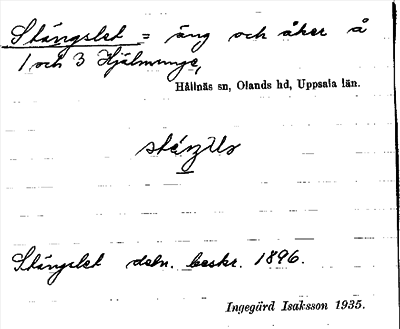 Stängslet = äng och åker å
1 och 3 Hjälmunge,
Hållnäs sn, Olands hd, Uppsala län.
Stängslet debn. beskr. 1896.
Ingegärd Isaksson 1935.